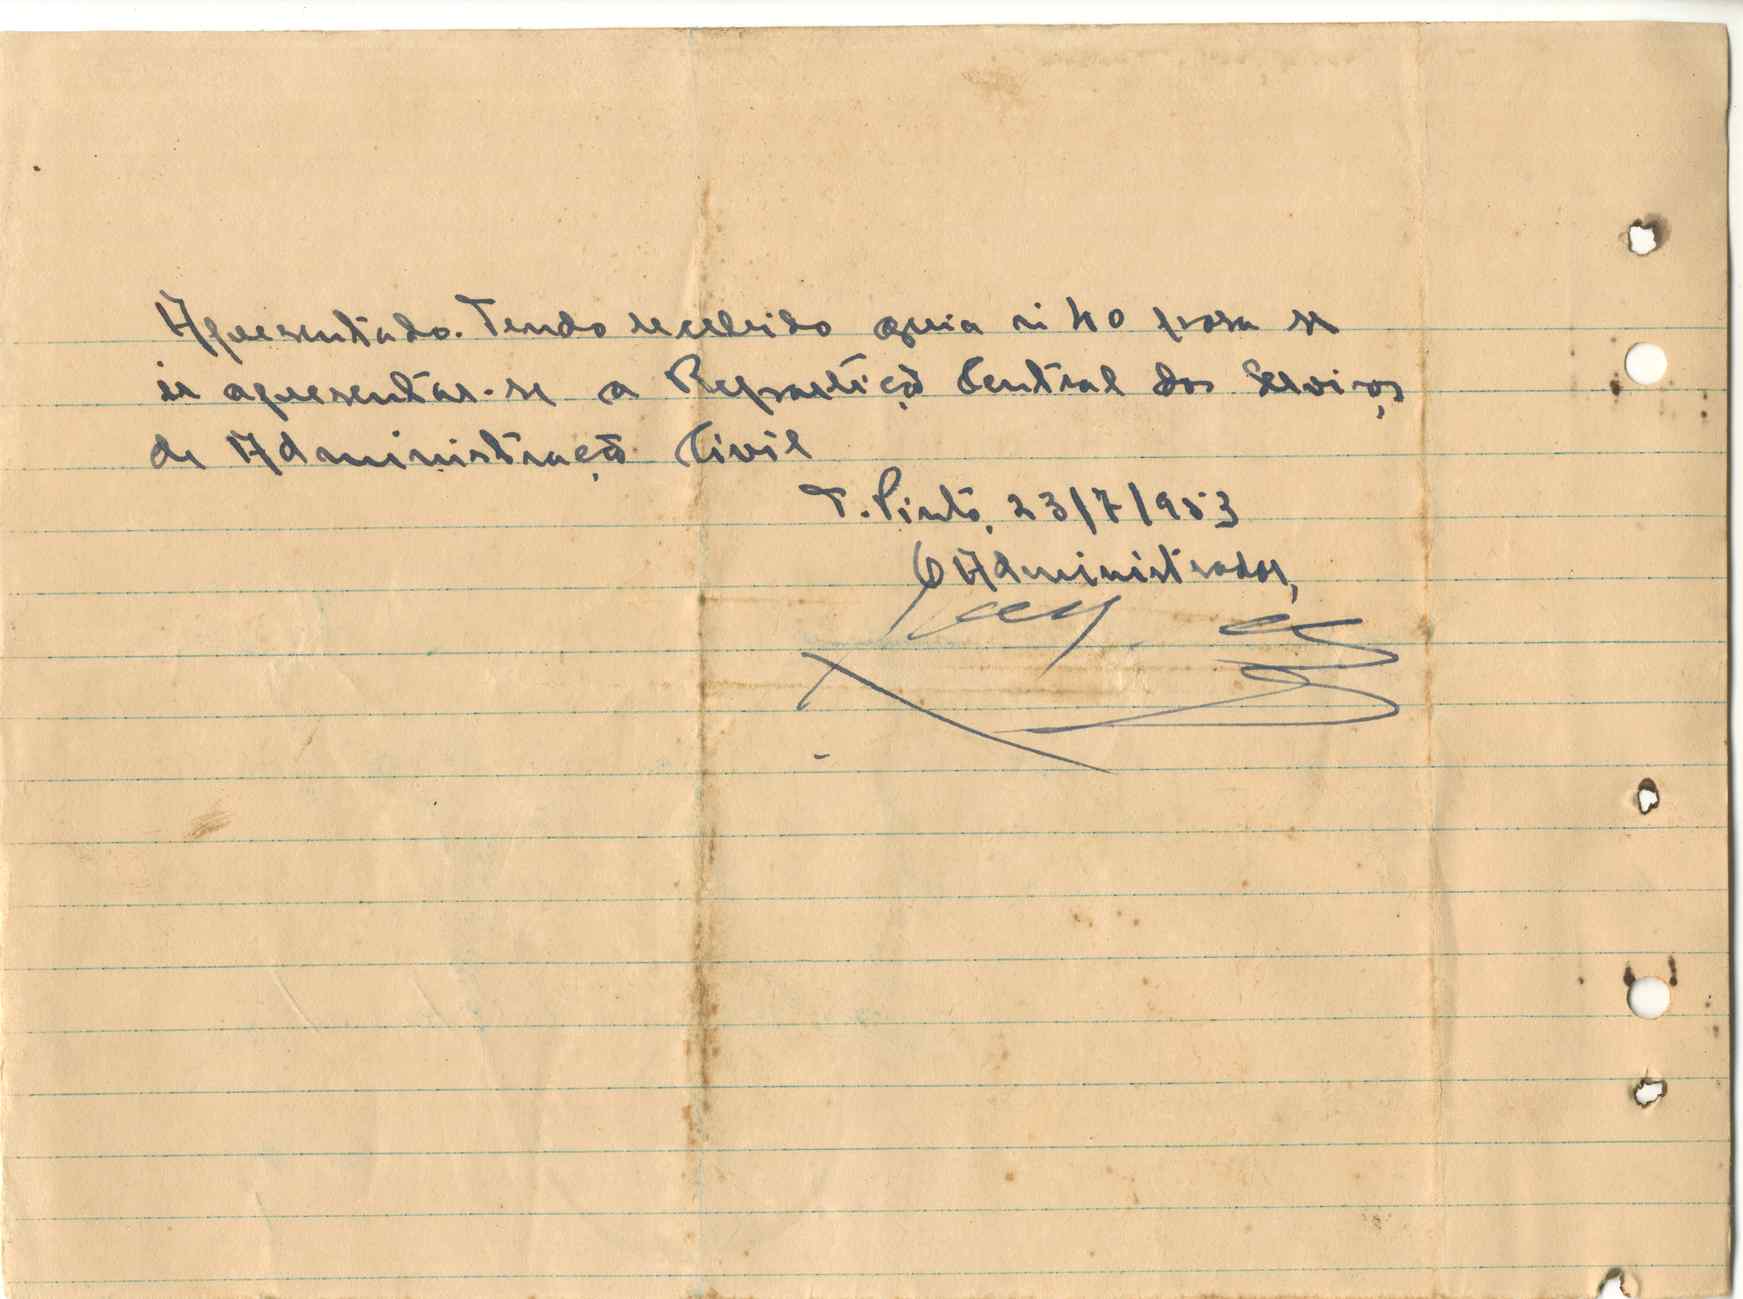 Apresentado. Tendo recebido guia nº 40 para se
ir apresentar-se a Repartição Central dos Serviços
de Administração Civil
T. Pinto, 23/7/953
O Administrador,